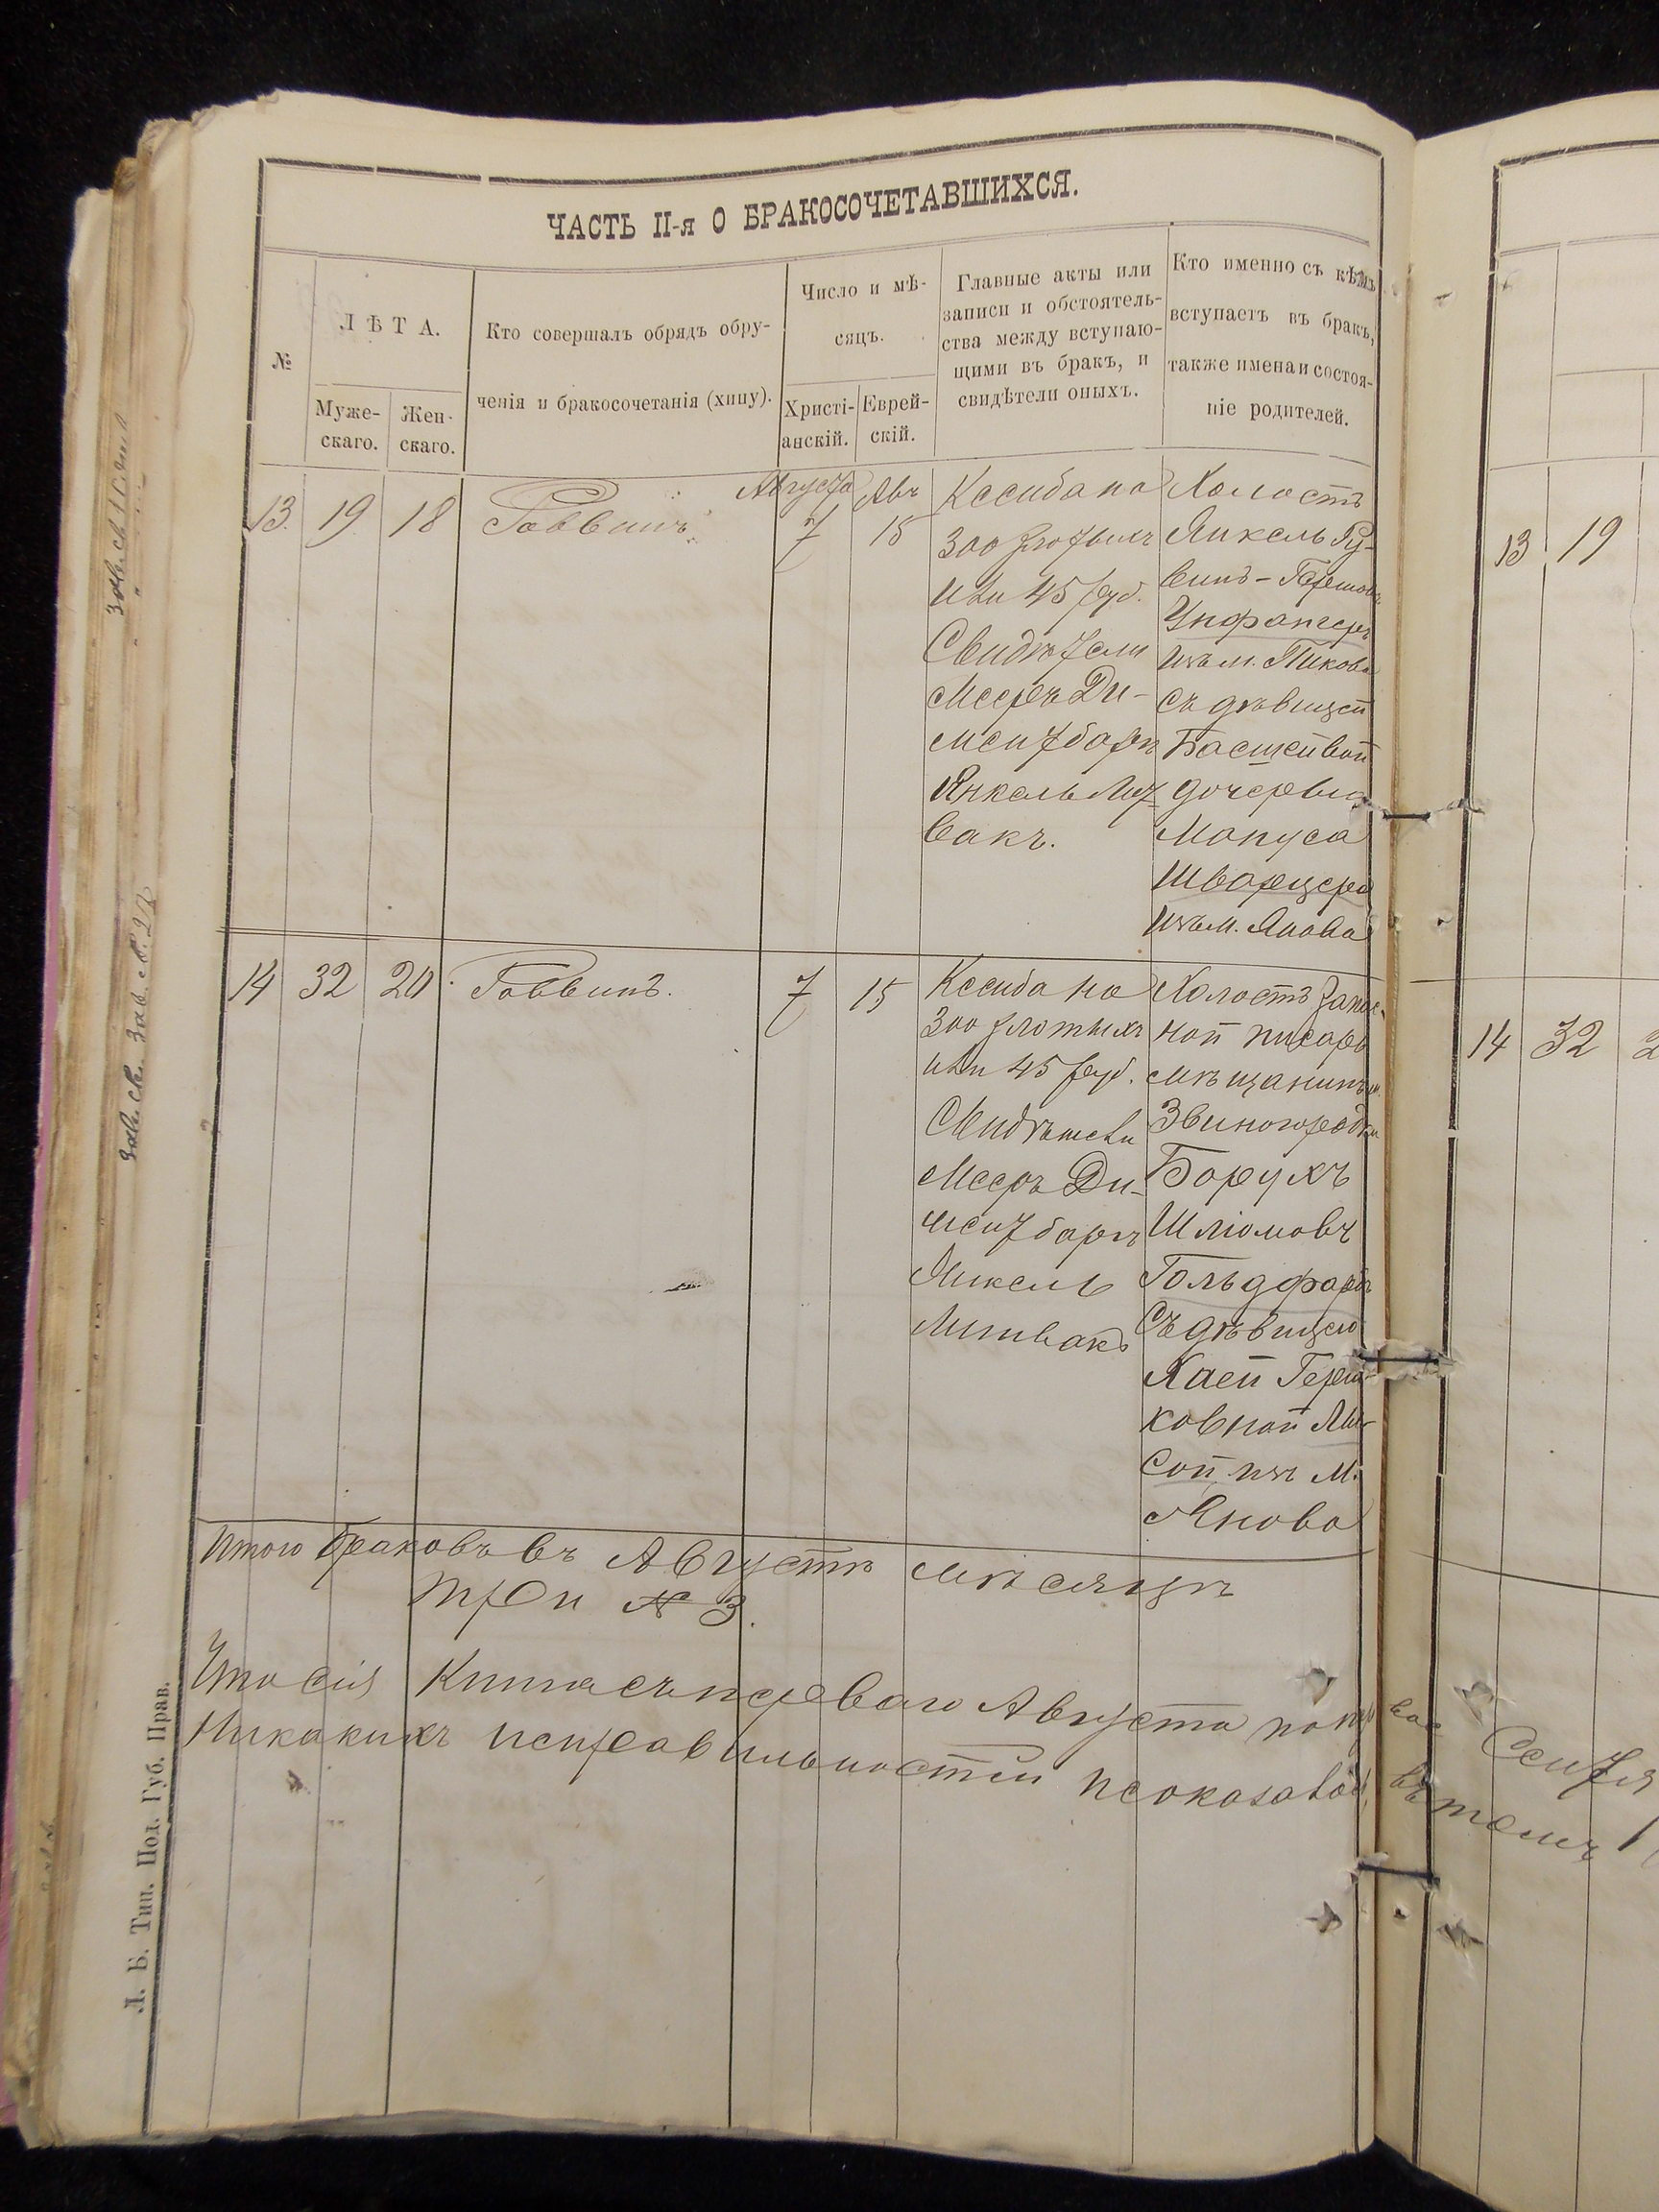 ЧАСТЬ II-я О БРАКОСОЧЕТАВШИХСЯ.
№
ЛѢТА.
Муже-
скаго.
Жен-
скаго.
Кто совершалъ обрядъ обру-
ченія и бракосочетанія (хипу).
Число и мѣ-
сяцъ.
Христі-
анскій.
Еврей-
скій.
Главные акты или
записи и обстоятель-
ства между вступаю-
щими въ бракъ, и
свидѣтели оныхъ.
Кто именно съ кѣмъ
вступаетъ въ бракъ,
также имена и состоя-
ніе родителей.
13
19
18
Раввинъ
Августа
7
Авъ
15
Ксиба на
300 злотыхъ
или 45 руб.
Свидѣтели
Мееръ Ди-
Янкель Лит
вакъ.
Холостъ
Янкель Ру-
винъ-Гершовъ
Унфангеръ
изъ м. Пикова
съ дѣвицей
Басшейвой
дочерью
Мануса
Шварцера
изъ м. Янова
14
32
20
Раввинъ.
7
15
Ксиба на
300 злотыхъ
или 45 руб.
Свидѣтели
Мееръ Ди-
Янкель
Литвакъ
Холостъ запас-
ной писарь
мѣщанинъ
Звиногородки
Борухъ
Шлiомовъ
Гольдфарбъ
съ дѣвицею
Хаей Герш-
ковной
изъ м.
Янова
Итого браковъ въ Августѣ мѣсяцѣ
три № 3.
Что сія Книга съ перваго Августа по
Никакихъ неправильностей неоказалось, въ томъ
13
19
14
32
Л. Б. Тип. Под. Губ. Прав.